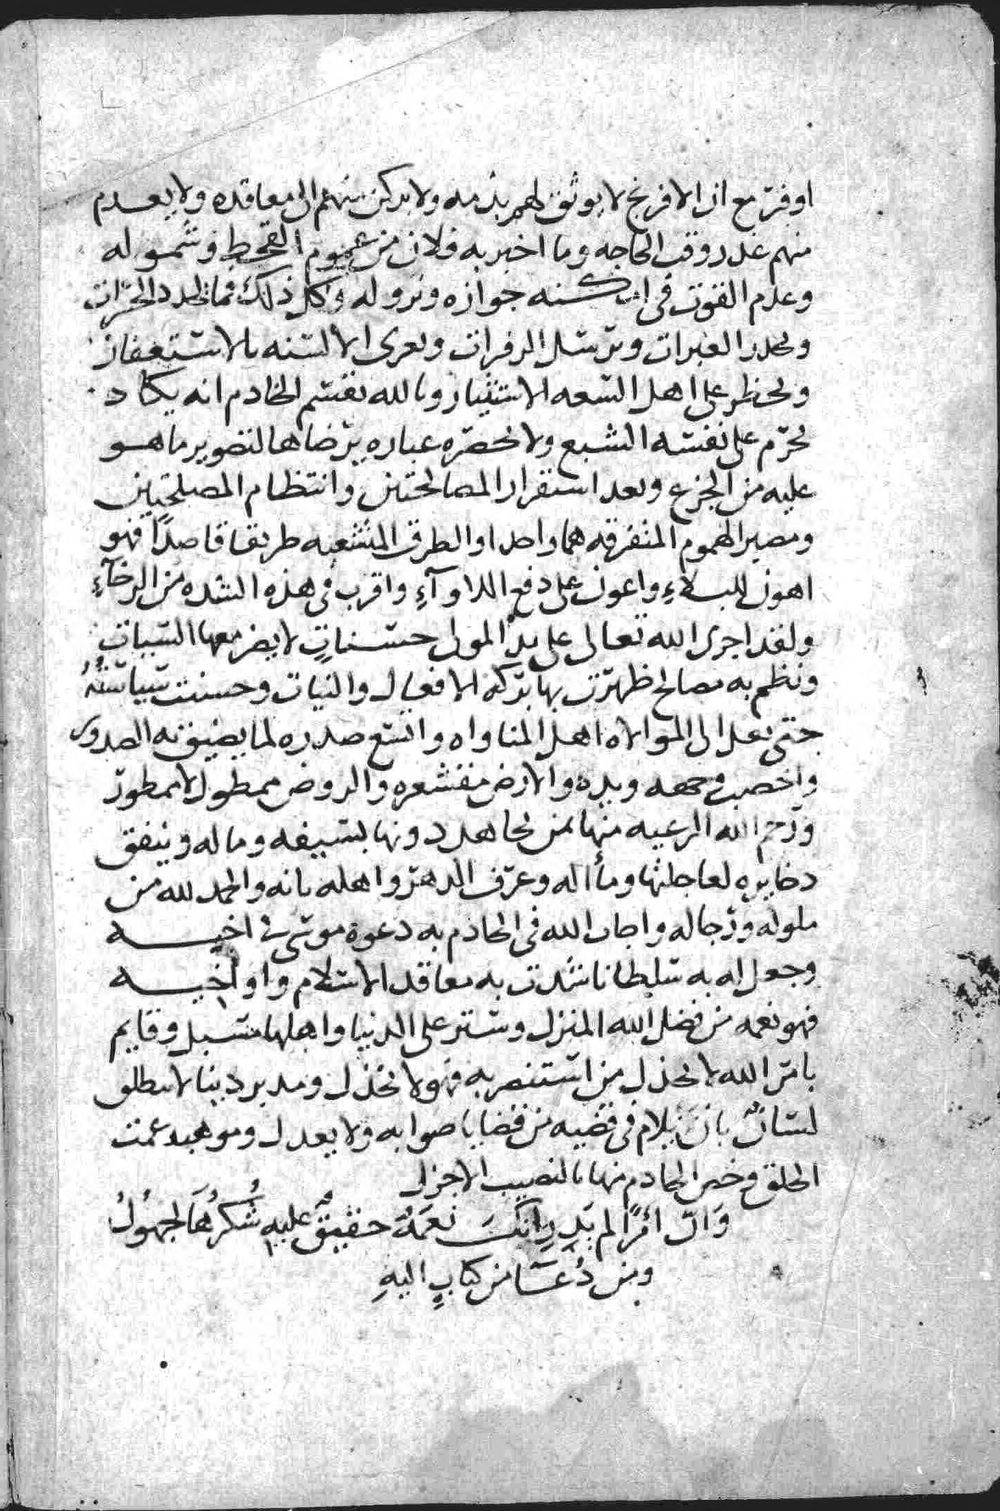 اوفر مع ان الافرنج لا يوثق لهم بذمه ولا يركن منهم الى معاقده ولا يعدم
منهم غدر وقت الحاجه وما اخبر به فلان من عموم القحط وشموله
وعدم القوت في جوازه ونزوله وكل ذلك مما يجدد الحسرات
ويحدر العبرات ويرسل الزفرات ويغرى الالسنه بالاستغفار
ويحظر على اهل السعه الاستيثار وبالله يقسم الخادم انه يكاد
يحرم على نفسه الشبع ولا تحضره عباره يرضاها لتصوير ما هو
عليه من الجزع وبعد استقرار المصالحتين وانتظام المصلحتين
ومصير الهموم المتفرقه هما واحدا والطرق المتشعبه طريقا قاصدا فهو
اهون للبلاء واعون على دفع اللاواء واقرب في هذه الشده من الرخاء
ولقد اجرى الله تعالى على يد المولى حسنات لا يضر معها السيات
ونظم به مصالح ظهرت بها بركه الافعال والنيات وحسنت سياسته
حتى نقل الى الموالاه اهل المناواه واتسع صدره لما يضيق به الصدور
واخصب ربعه ويده والارض مقشعره والروض ممطول لا ممطور
ورحم الله الرعيه منها بمن يجاهد دونها بسيفه وماله وينفق
ذخايره لعاجلتها ومآله وعرف الدهر واهله بانه والحمد لله من
ملوكه ورجاله واجاب الله في الخادم به دعوة موسى في اخيه
وجعل له به سلطانا شدت به معاقد الاسلام واواخيه
فهو نعمه من فضل الله المنزل وستر على الدنيا واهلها مسبل وقايم
بامر الله لا يخذل من استنصر به فهو لا يخذل ومدبر دينا لا ينطلق
لسان بان يلام في قضيه من قضايا صوابه ولا يعدل وموهبه عمت
الخلق وخص الخادم منها بالنصيب الاجزل
وان امرأ لم يدر انك نعمة حقيق عليه شكرها لجهول
ومن دعا من كتاب اليه